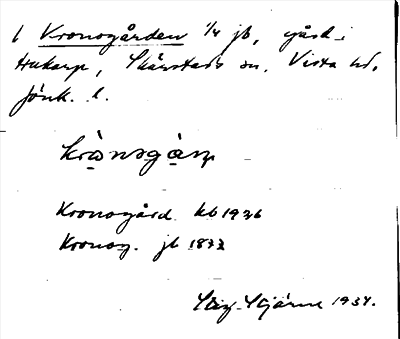 1 Kronogården 1/4 jb, gård i
Hukarp, Skärstads sn. Vista hd,
Jönk. l.
Kronogård kb 1926
Kronog. jb 1873
Stig Stjärne 1934.